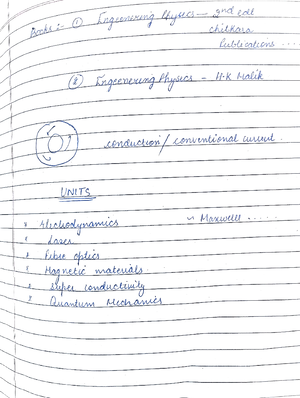 Books :- ① Engeenering Physics — 2nd edt
chitkara
Publications ....
② Engeenering Physics - H.K Malik
conduction / conventional current.
UNITS
* Electrodynamics ~ Maxwell ......
* Laser
* Fibre optics
* Magnetic materials.
* Super conductivity
* Quantum Mechanics